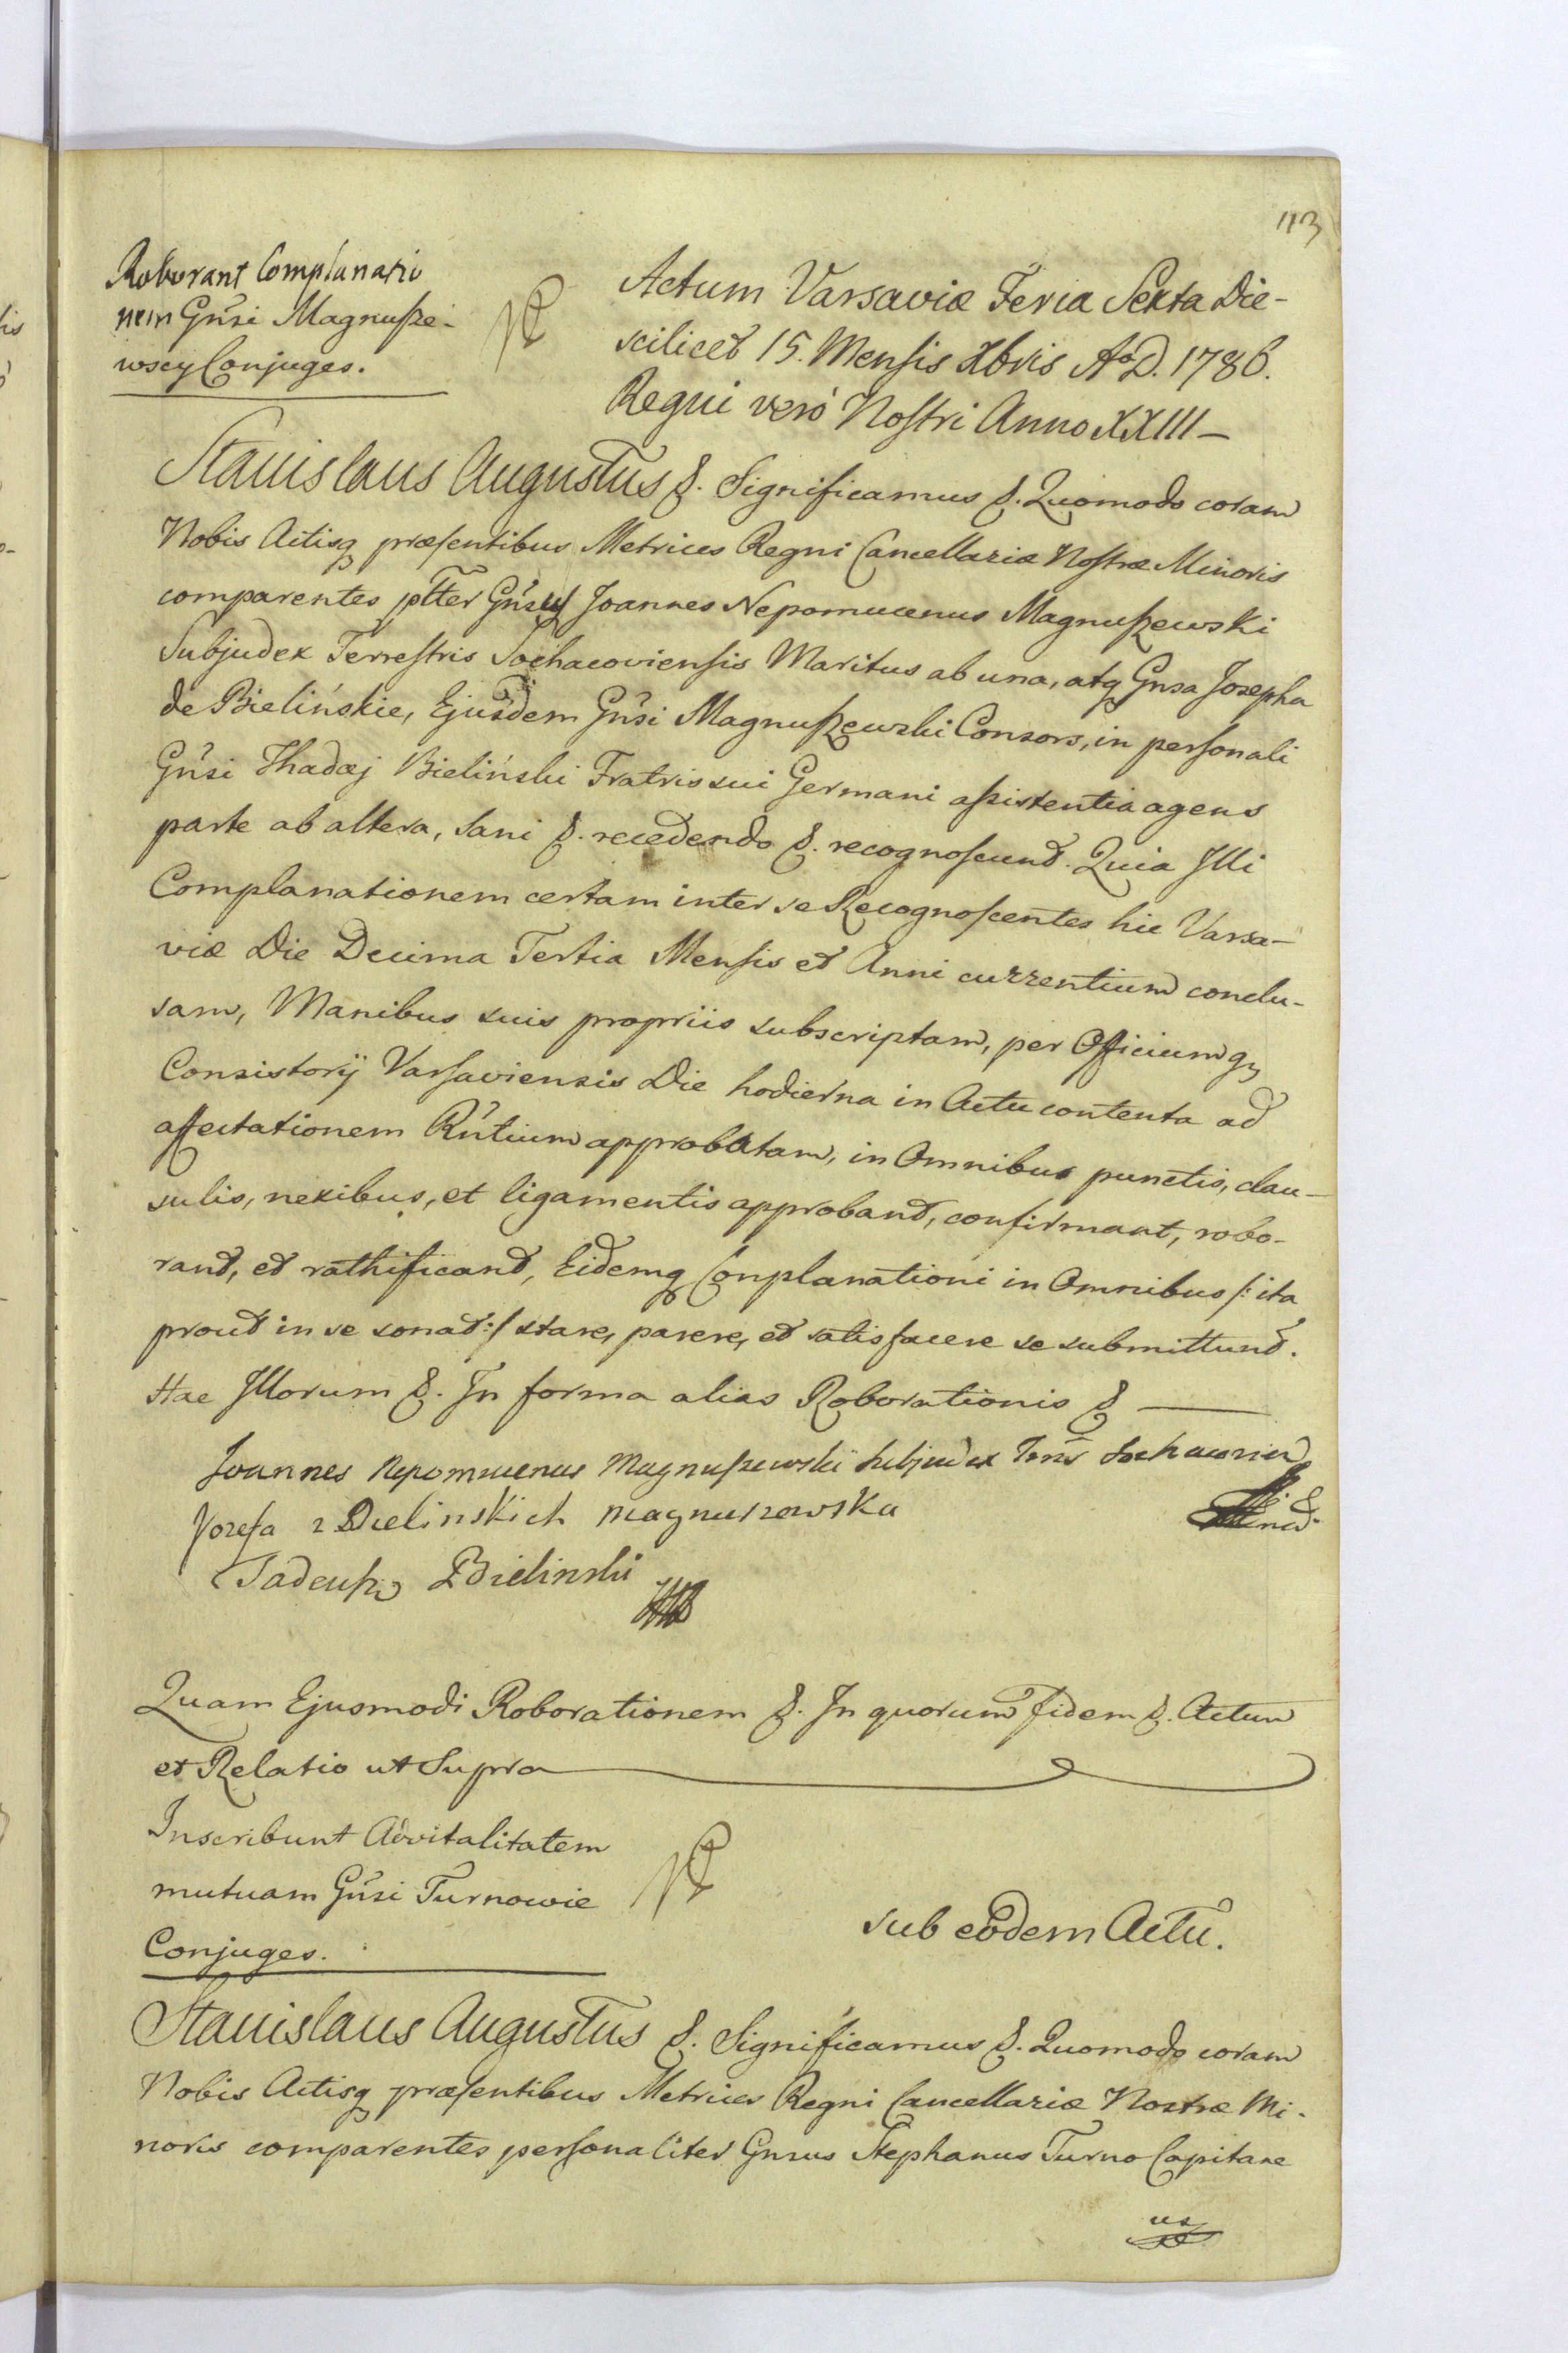 113
Roborant Complanatio
nem Gnsi Magnusze-
wscy Conjuges.
Actum Varsaviæ Feria Sexta Die-
scilicet 15. Mensis Xbris AoD. 1786.
Regni verò Nostri Anno XXIII –
Stanislaus Augustus &. Significamus &. Quomodo coram
Nobis Actisq præsentibus Metrices Regni Cancellariæ Nostræ Minoris
comparentes pltter Gnsus Joannes Nepomucenus Magnuszewski
Subjudex Terrestris Sochacoviensis Maritus ab una, atq Gnsa Josepha
de Bielińskie, Ejusdem Gnsi Magnuszewski Consors, in personali
Gnsi Thadæj Bieliński Fratris sui Germani assistentia agens
parte ab altera, Sani &. recedendo &. recognoscunt. Quia Illi
Complanationem certam inter se Recognoscentes hic Varsa-
viæ Die Decima Tertia Mensis et Anni currentium conclu-
sam, Manibus suis propriis subscriptam, per Officiumq
Consistorij Varsaviensis Die hodierna in Actu contenta ad
affectationem Rntium approbatam, in Omnibus punctis, clau-
sulis, nexibus, et ligamentis approbant, confirmant, robo-
rant, et rathificant, Eidemq Conplanationi in Omnibus /: ita
prout in se sonat :/ stare, parere, et satisfacere se submittunt.
Hac Illorum &. In forma alias Roborationis &
Joannes Nepomucenus Magnuszewski Subjudex Terrs Sochacovien
Jozefa z Bielinskich Magnuszewska
Tadeusz Bielinski
Quam Ejusmodi Roborationem &. In quorum fidem &. Actum
et Relatio ut Supra
Inscribunt Advitalitatem
mutuam Gnsi Turnowie
Conjuges.
sub eodem Actu.
Stanislaus Augustus &. Significamus &. Quomodo coram
Nobis Actisq præsentibus Metrices Regni Cancellariæ Nostræ Mi-
noris comparentes personaliter Gnsus Stephanus Turno Capitane
us